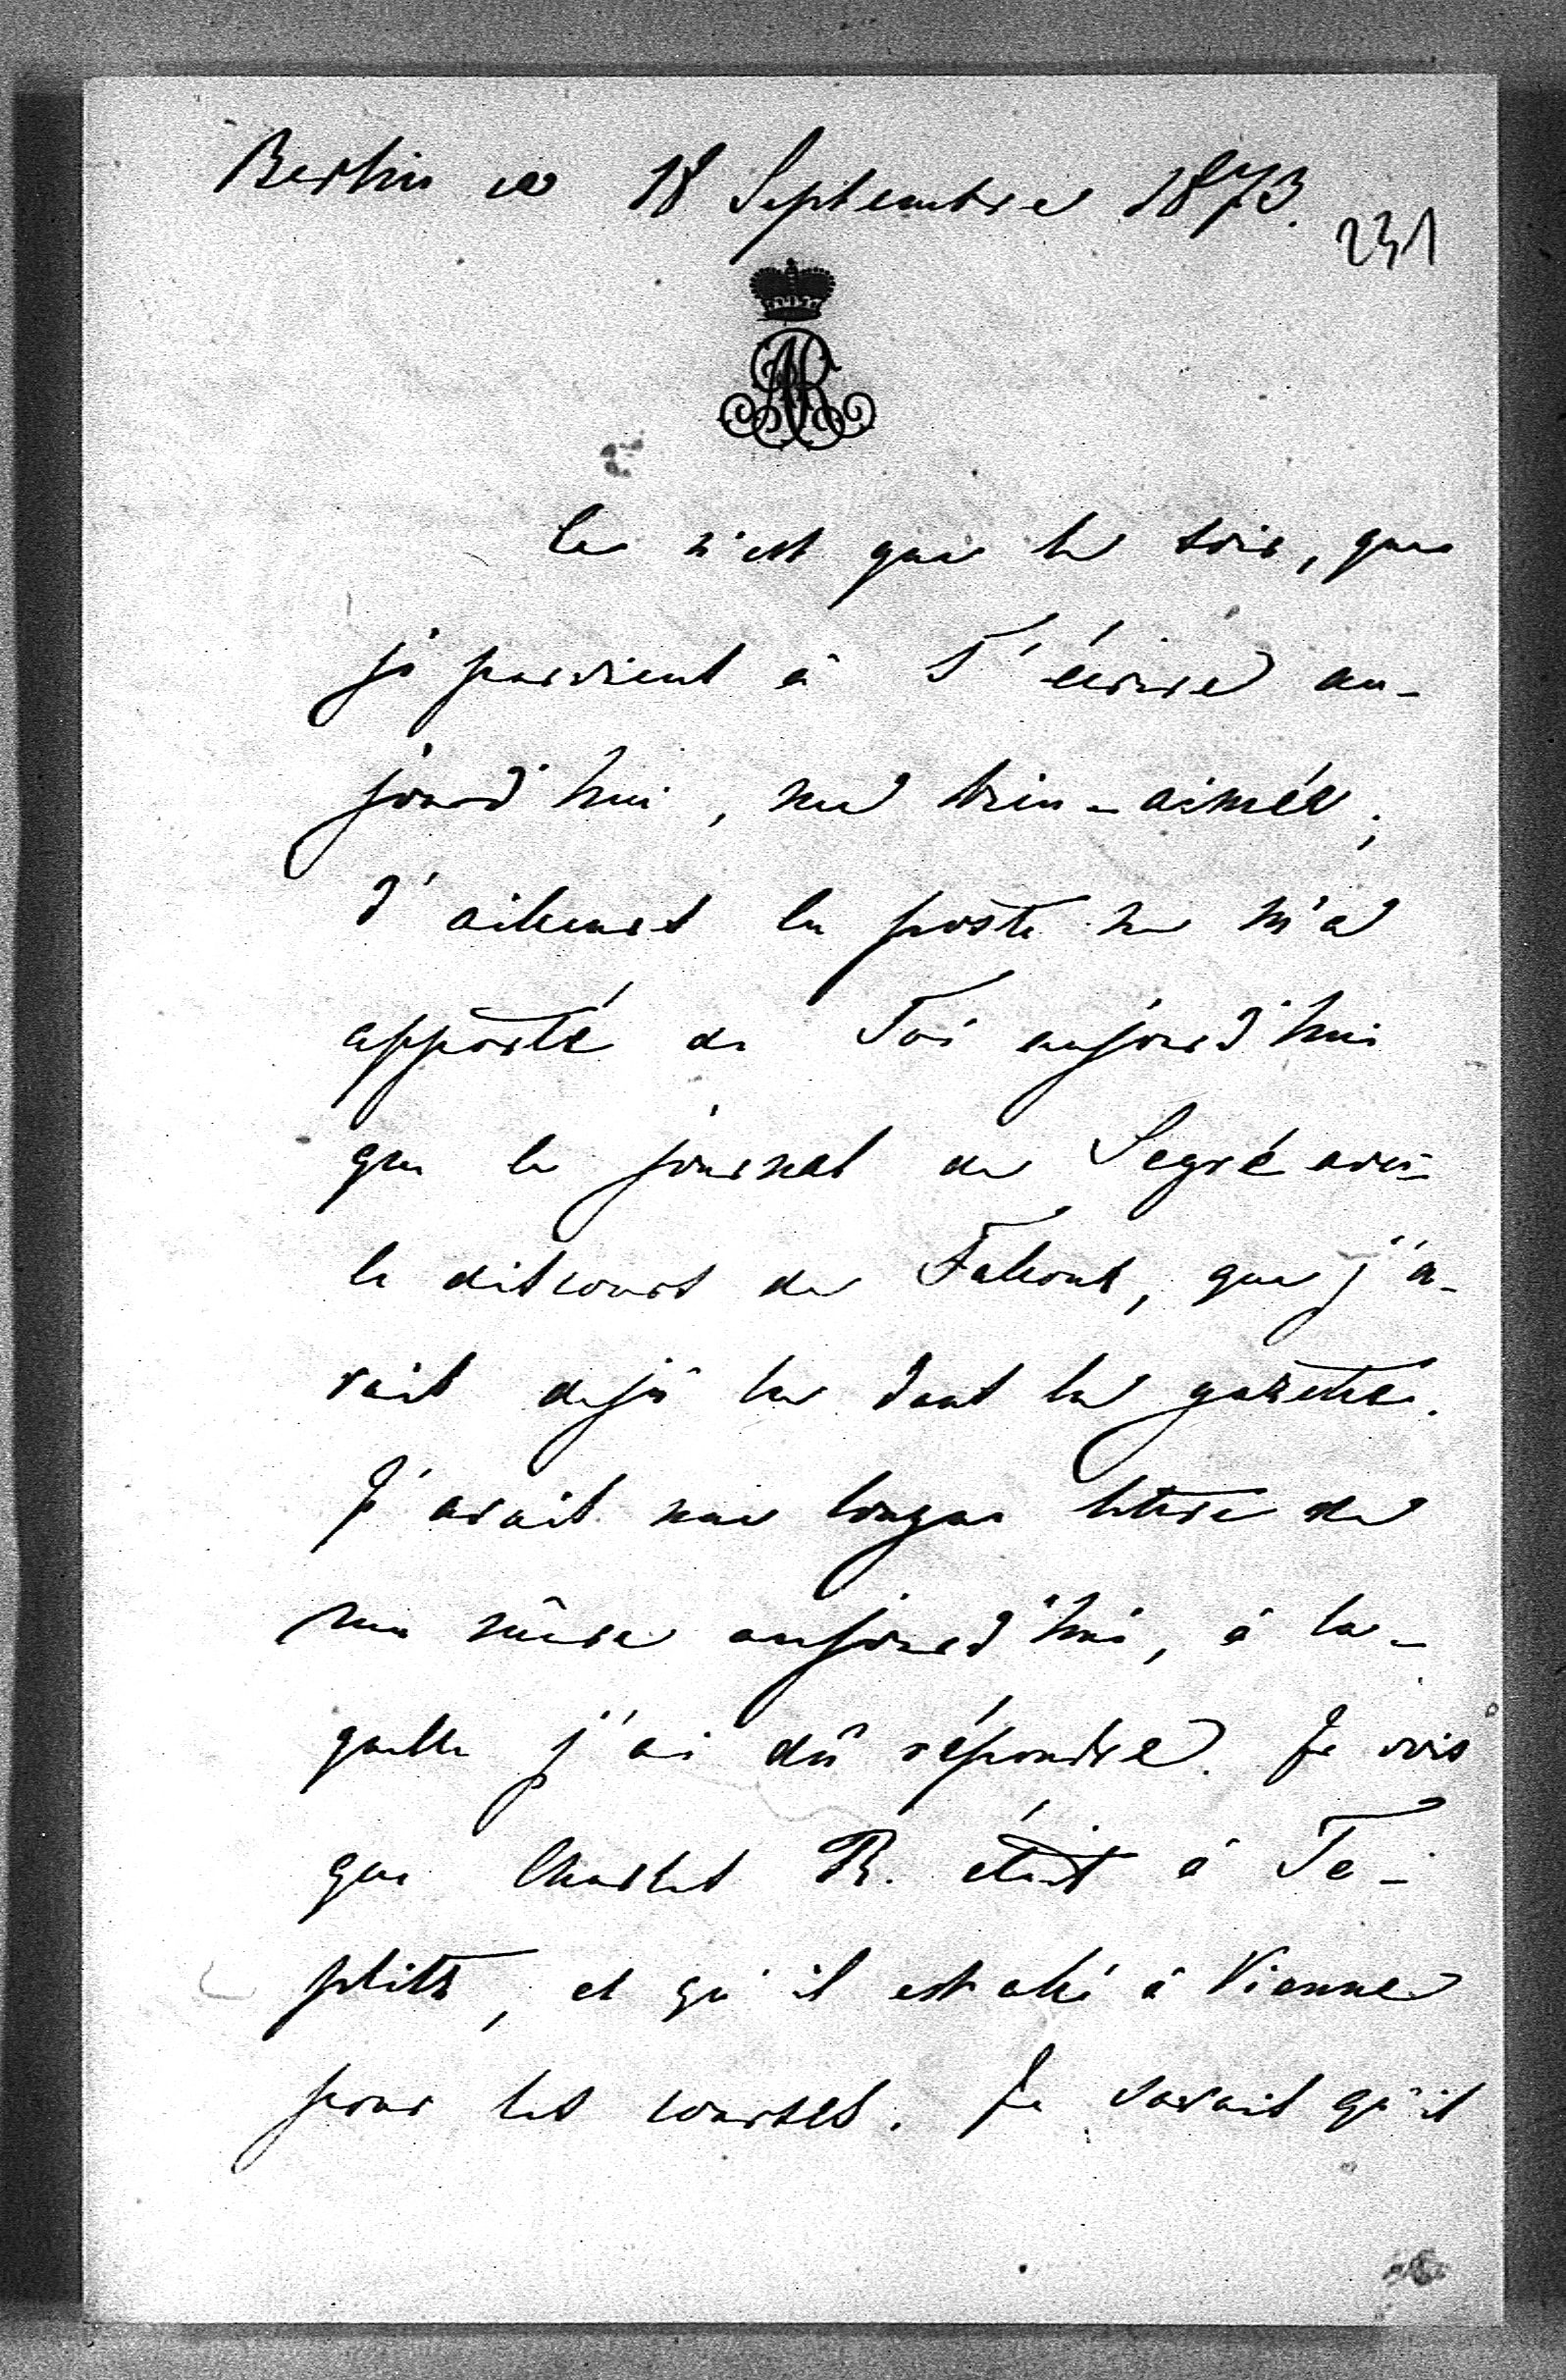 Berlin ce 18 Septembre 1873.
231
AR
Ce n'est que le soir, que
je parviens à T'écrire au-
jourd'hui, ma bien-aimée;
d'ailleurs la poste ne m'a
apporté de Toi aujourd'hui
que le journal de Segré avec
le discours de Falloux, que j'a-
vais dejà lu dans la gazette.
J'avais une longue lettre de
ma mère aujourd'hui, à la-
quelle j'ai dû répondre. Je vois
que Charles R. était à Te-
plitz, et qu'il est allé à Vienne
pour les courses. Je savais qu'il